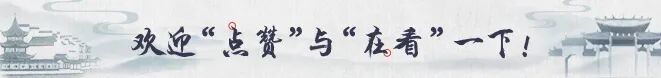 欢迎“点赞”与“在看”一下！